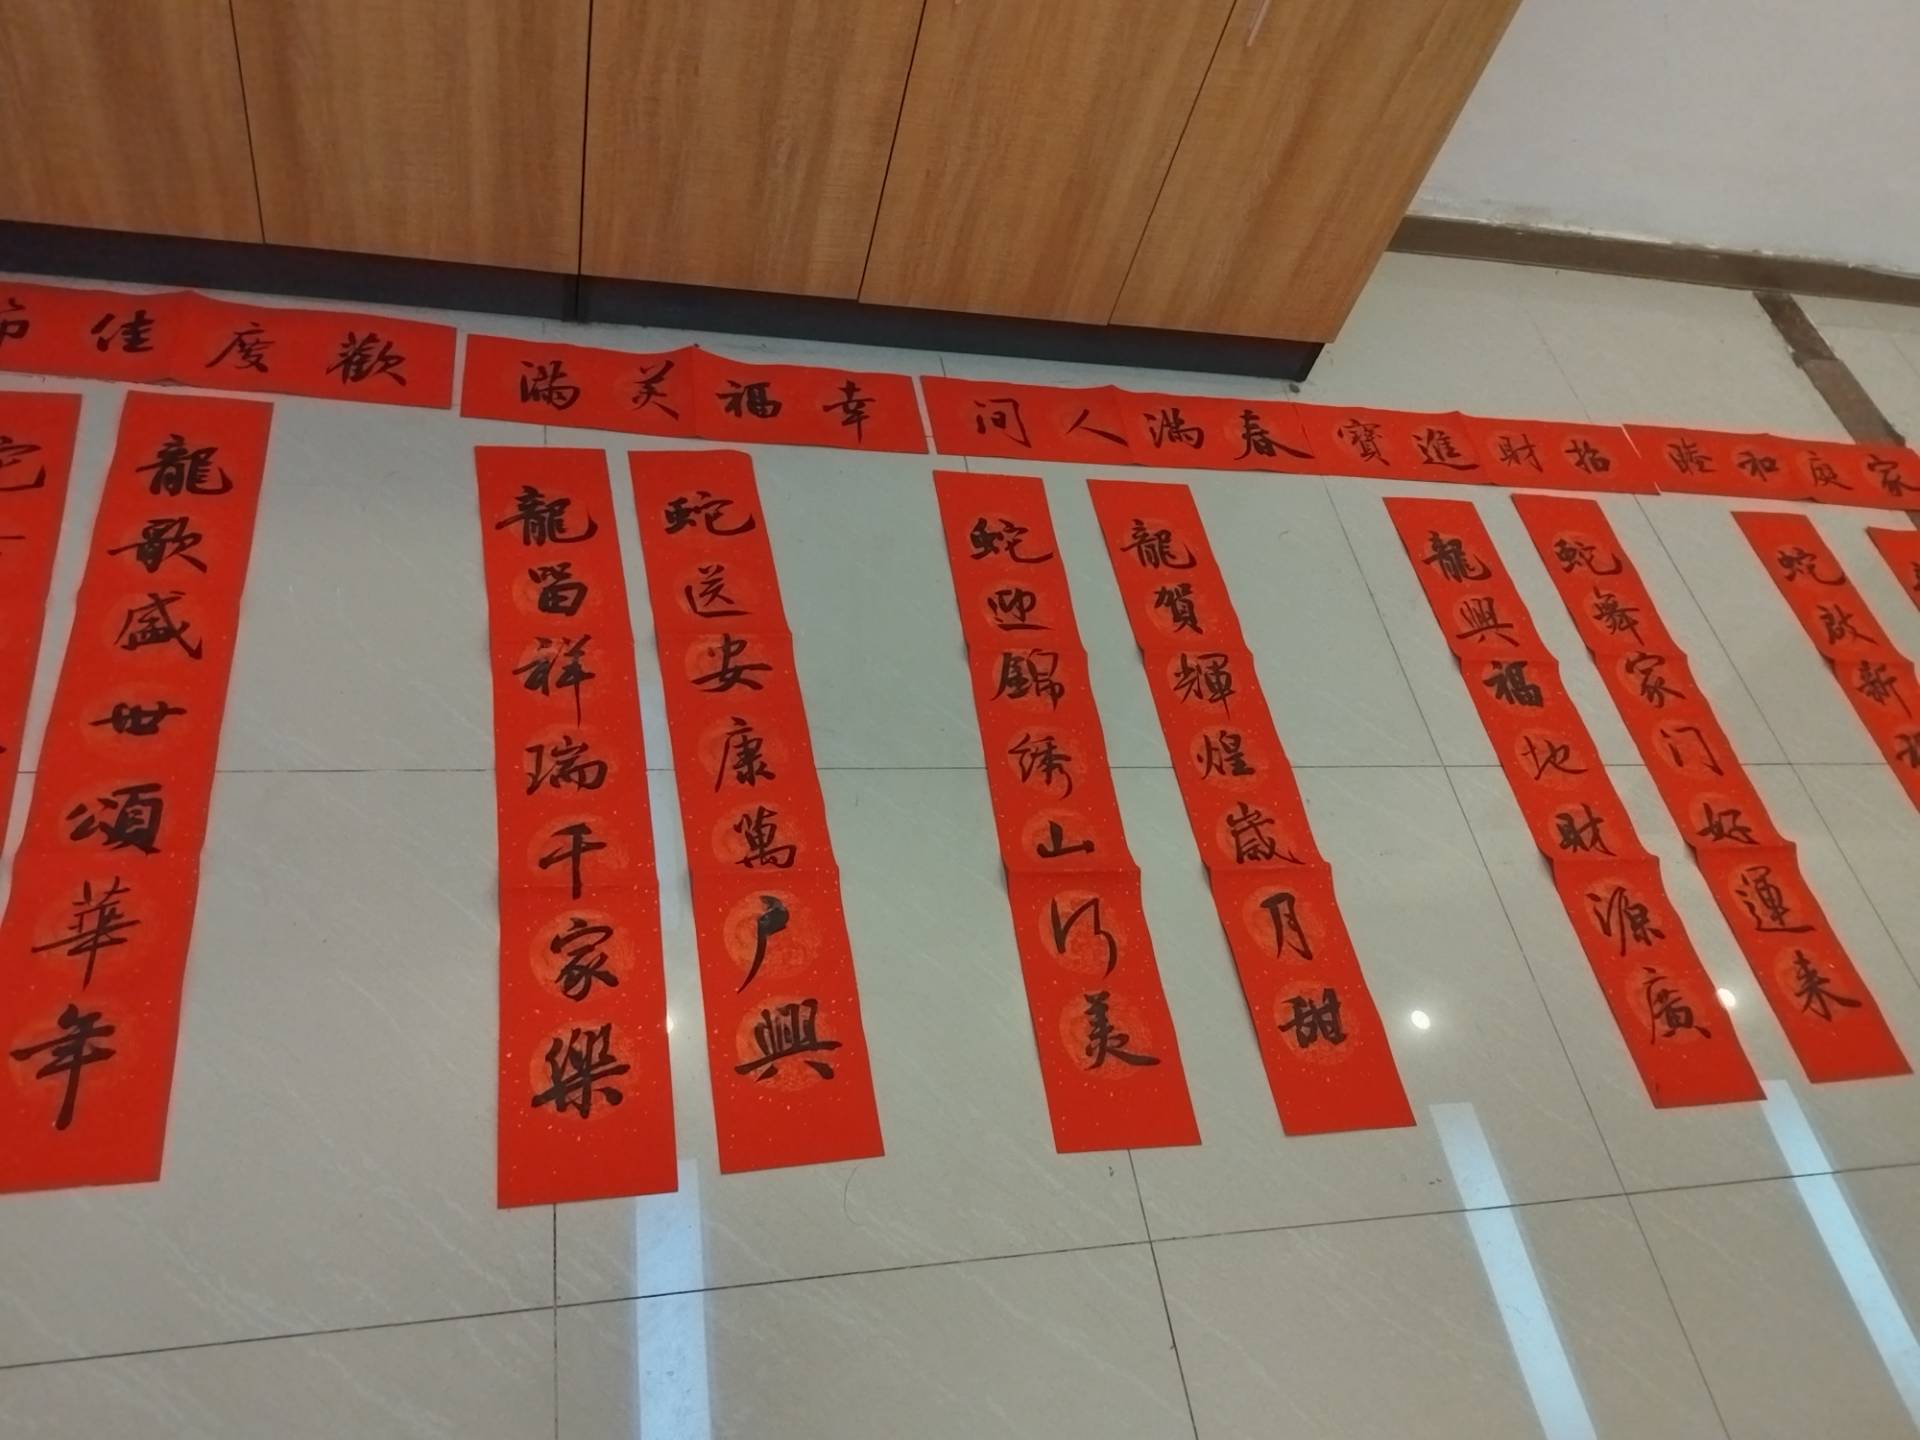 歡度佳节
龍歌盛世頌華年
幸福美滿
龍留祥瑞千家樂
蛇送安康萬户興
春滿人间
蛇迎錦绣山河美
龍賀輝煌歲月甜
招財進寶
龍興福地財源廣
蛇舞家门好運来
家庭和睦
蛇啟新